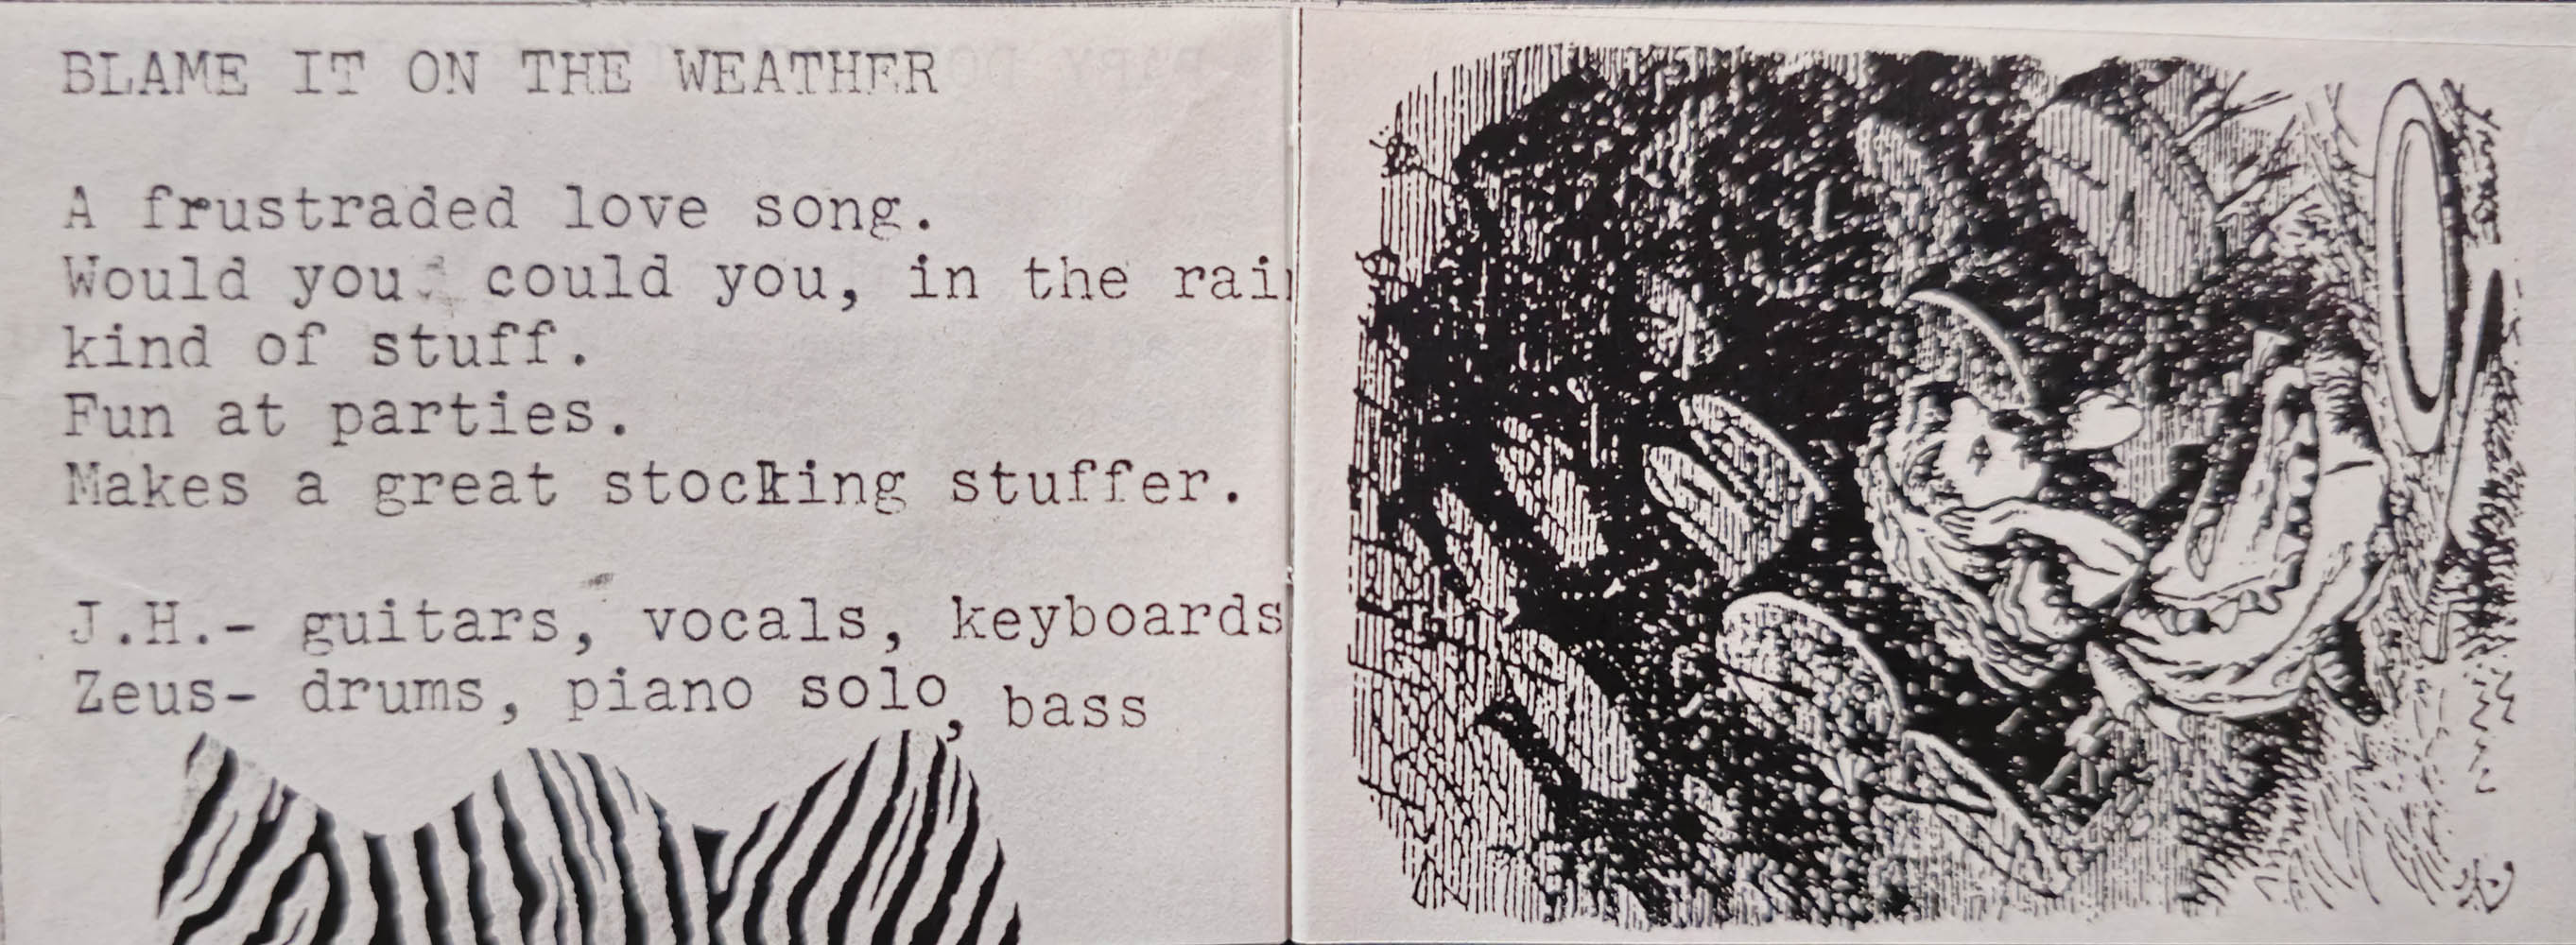 BLAME IT ON THE WEATHER
A frustraded love song.
Would you could you, in the rain
kind of stuff.
Fun at parties.
Makes a great stocking stuffer.
J.H.- guitars, vocals, keyboards
Zeus- drums, piano solo, bass